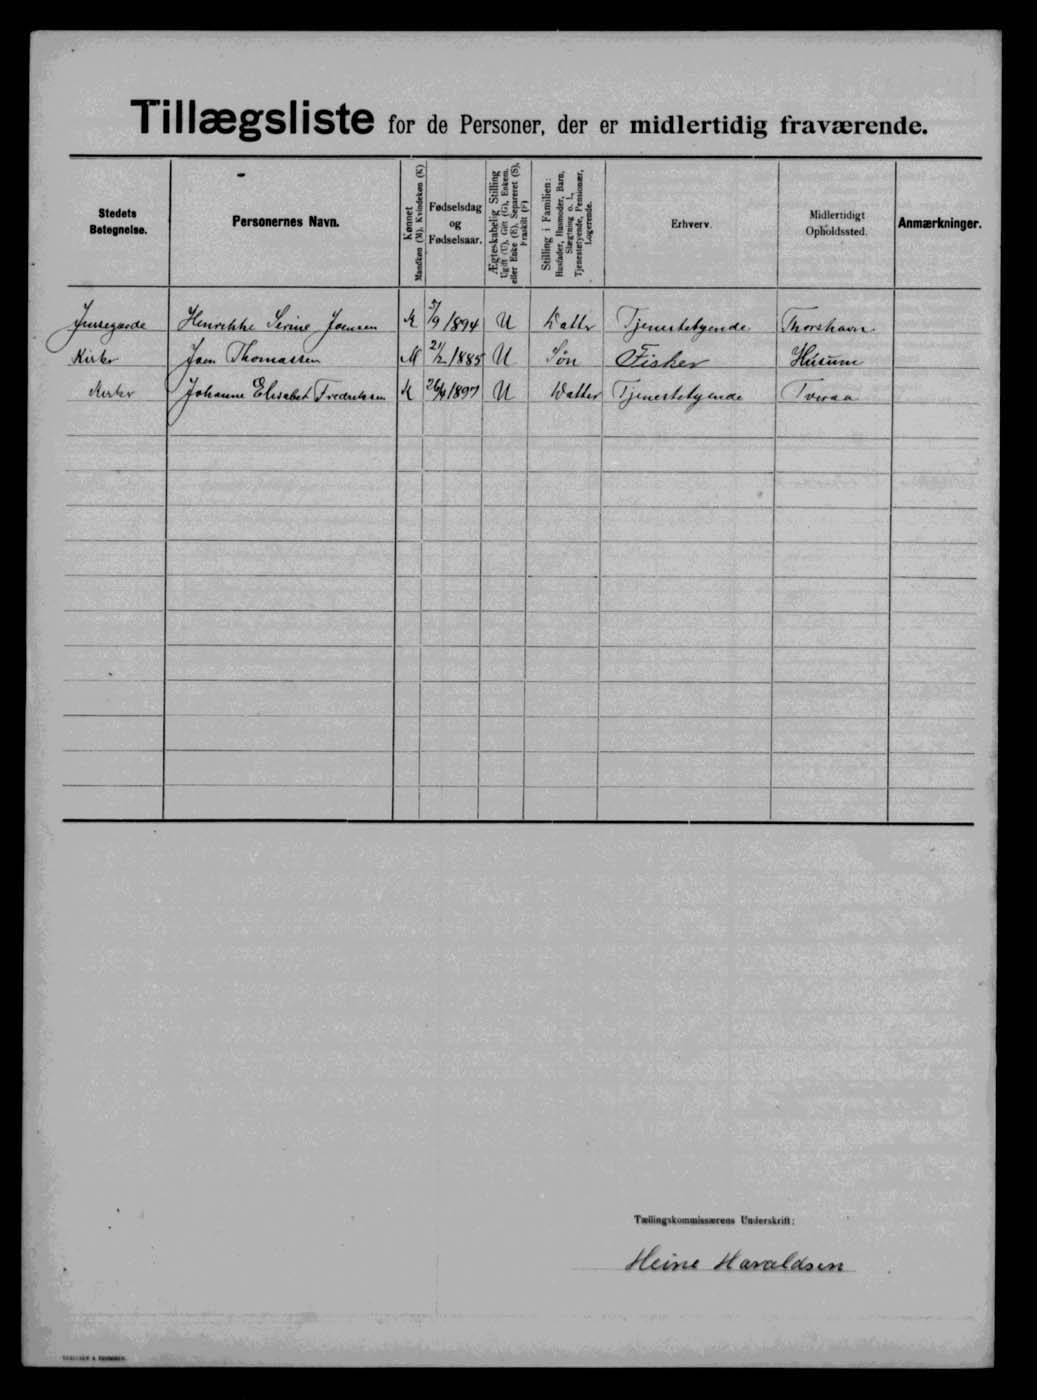 Tillægsliste for de Personer, der er midlertidig fraværende.
Stedets Betegnelse.
Personernes Navn.
Kønnet
Mandkøn (M). Kvindekøn (K)
Fødselsdag
og
Fødselsaar.
Ægteskabelig Stilling
Ugift (U), Gift (G), Enkem.
eller Enke (E), Separeret (S),
Fraskilt (F)
Stilling i Familien:
Husfader, Husmoder, Barn,
Slægtning o. l.,
Tjenestetyende, Pensionær,
Logerende.
Erhverv.
Midlertidigt
Opholdssted.
Anmærkninger.
Henrikke Serine Joensen K 5/9 1894 U Datter Tjenestetyende Thorshavn
Kirke Joen Thomassen M 21/2 1885 U Søn Fisker Húsum
Kirke Johanne Elisabet Fredriksen K 1897 U Datter Tjenestetyende Tveraa
Tællingskommissærens Underskrift:
Heine Haraldsen